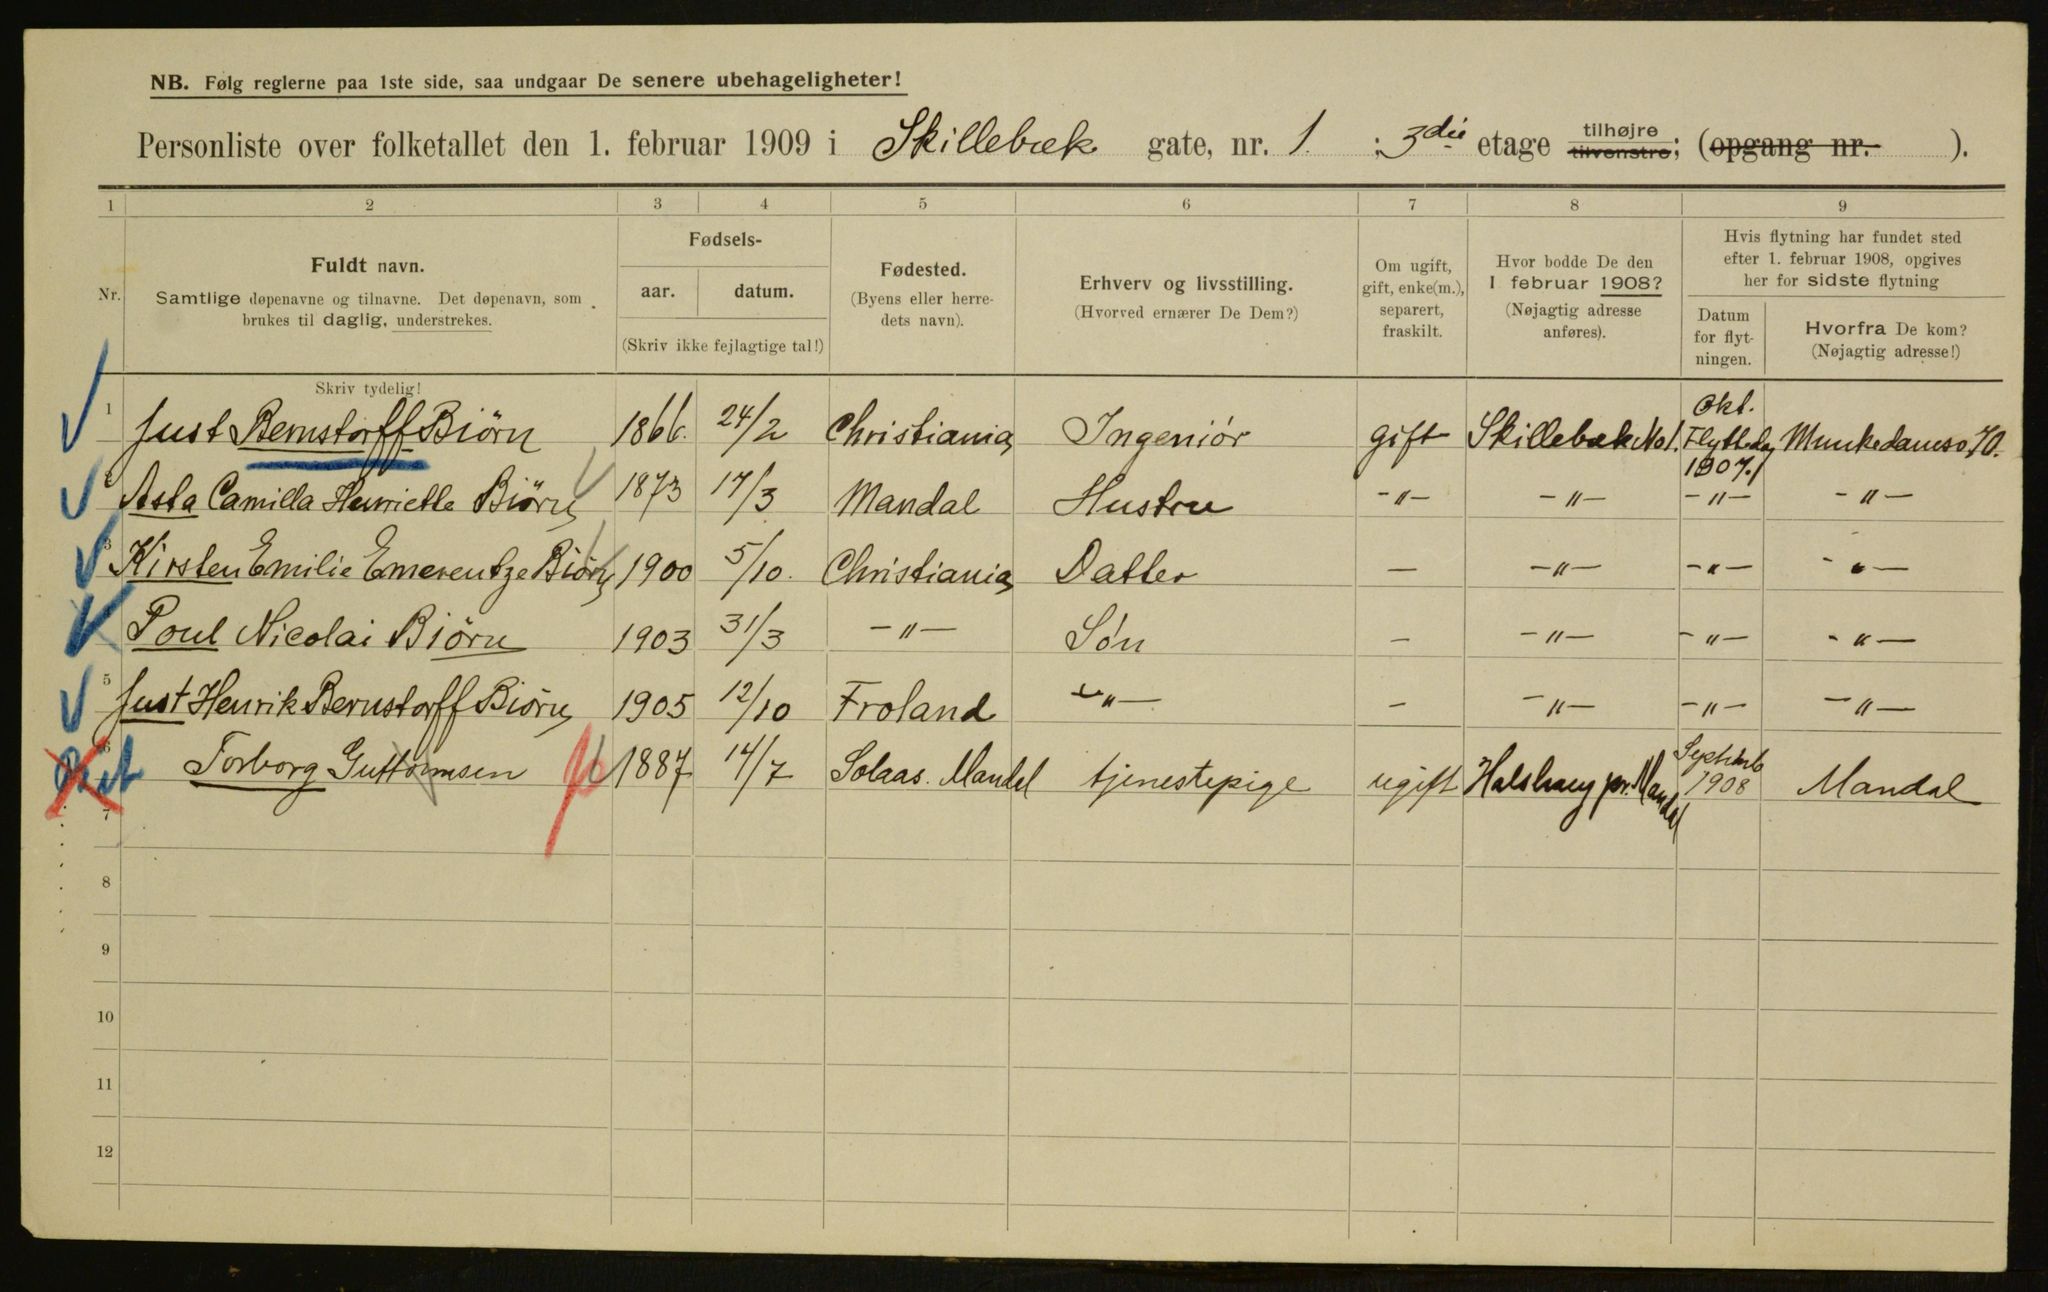 NB. Følg reglerne paa 1ste side, saa undgaar De senere ubehageligheter!
Personliste over folketallet den 1. februar 1909 i Skillebæk gate, nr. 1 ; 3die etage tilhøjre tilvenstre; (opgang nr. ).
1 2 3 4 5 6 7 8 9
Nr.
Fuldt navn.
Samtlige døpenavne og tilnavne. Det døpenavn, som
brukes til daglig, understrekes.
Skriv tydelig!
Fødsels-
aar. datum.
(Skriv ikke fejlagtige tal!)
Fødested.
(Byens eller herre-
dets navn).
Erhverv og livsstilling.
(Hvorved ernærer De Dem?)
Om ugift,
gift, enke(m.),
separert,
fraskilt.
Hvor bodde De den
1 februar 1908?
(Nøjagtig adresse
anføres).
Hvis flytning har fundet sted
efter 1. februar 1908, opgives
her for sidste flytning
Datum
for flyt-
ningen.
Hvorfra De kom?
(Nøjagtig adresse!)
1 Just Bernstorff Biørn 1866. 24/2 Christiania Ingeniør gift Skillebæk No 1. Okt. Flyttedag 1907. Munkedamsv. 70.
2 Asta Camilla Henriette Biørn 1873 17/3 Mandal Hustru -"- -"- -"- -"-
3 Kirsten Emilie Emerentze Biørn 1900 5/10. Christiania Datter — -"- -"- -"-
Poul Nicolai Biørn 1903 31/3 -"- Søn - -"- -"- -"-
5 Just Henrik Bernstorff Biørn 1905 12/10 Froland -"- - -"- -"- -"-
6 Torborg Guttormsen 1887 14/7 Solaas. Mandal tjenestepige ugift Halshaug pr. Mandal Septemb 1908 Mandal
7
8
9
10
11
12